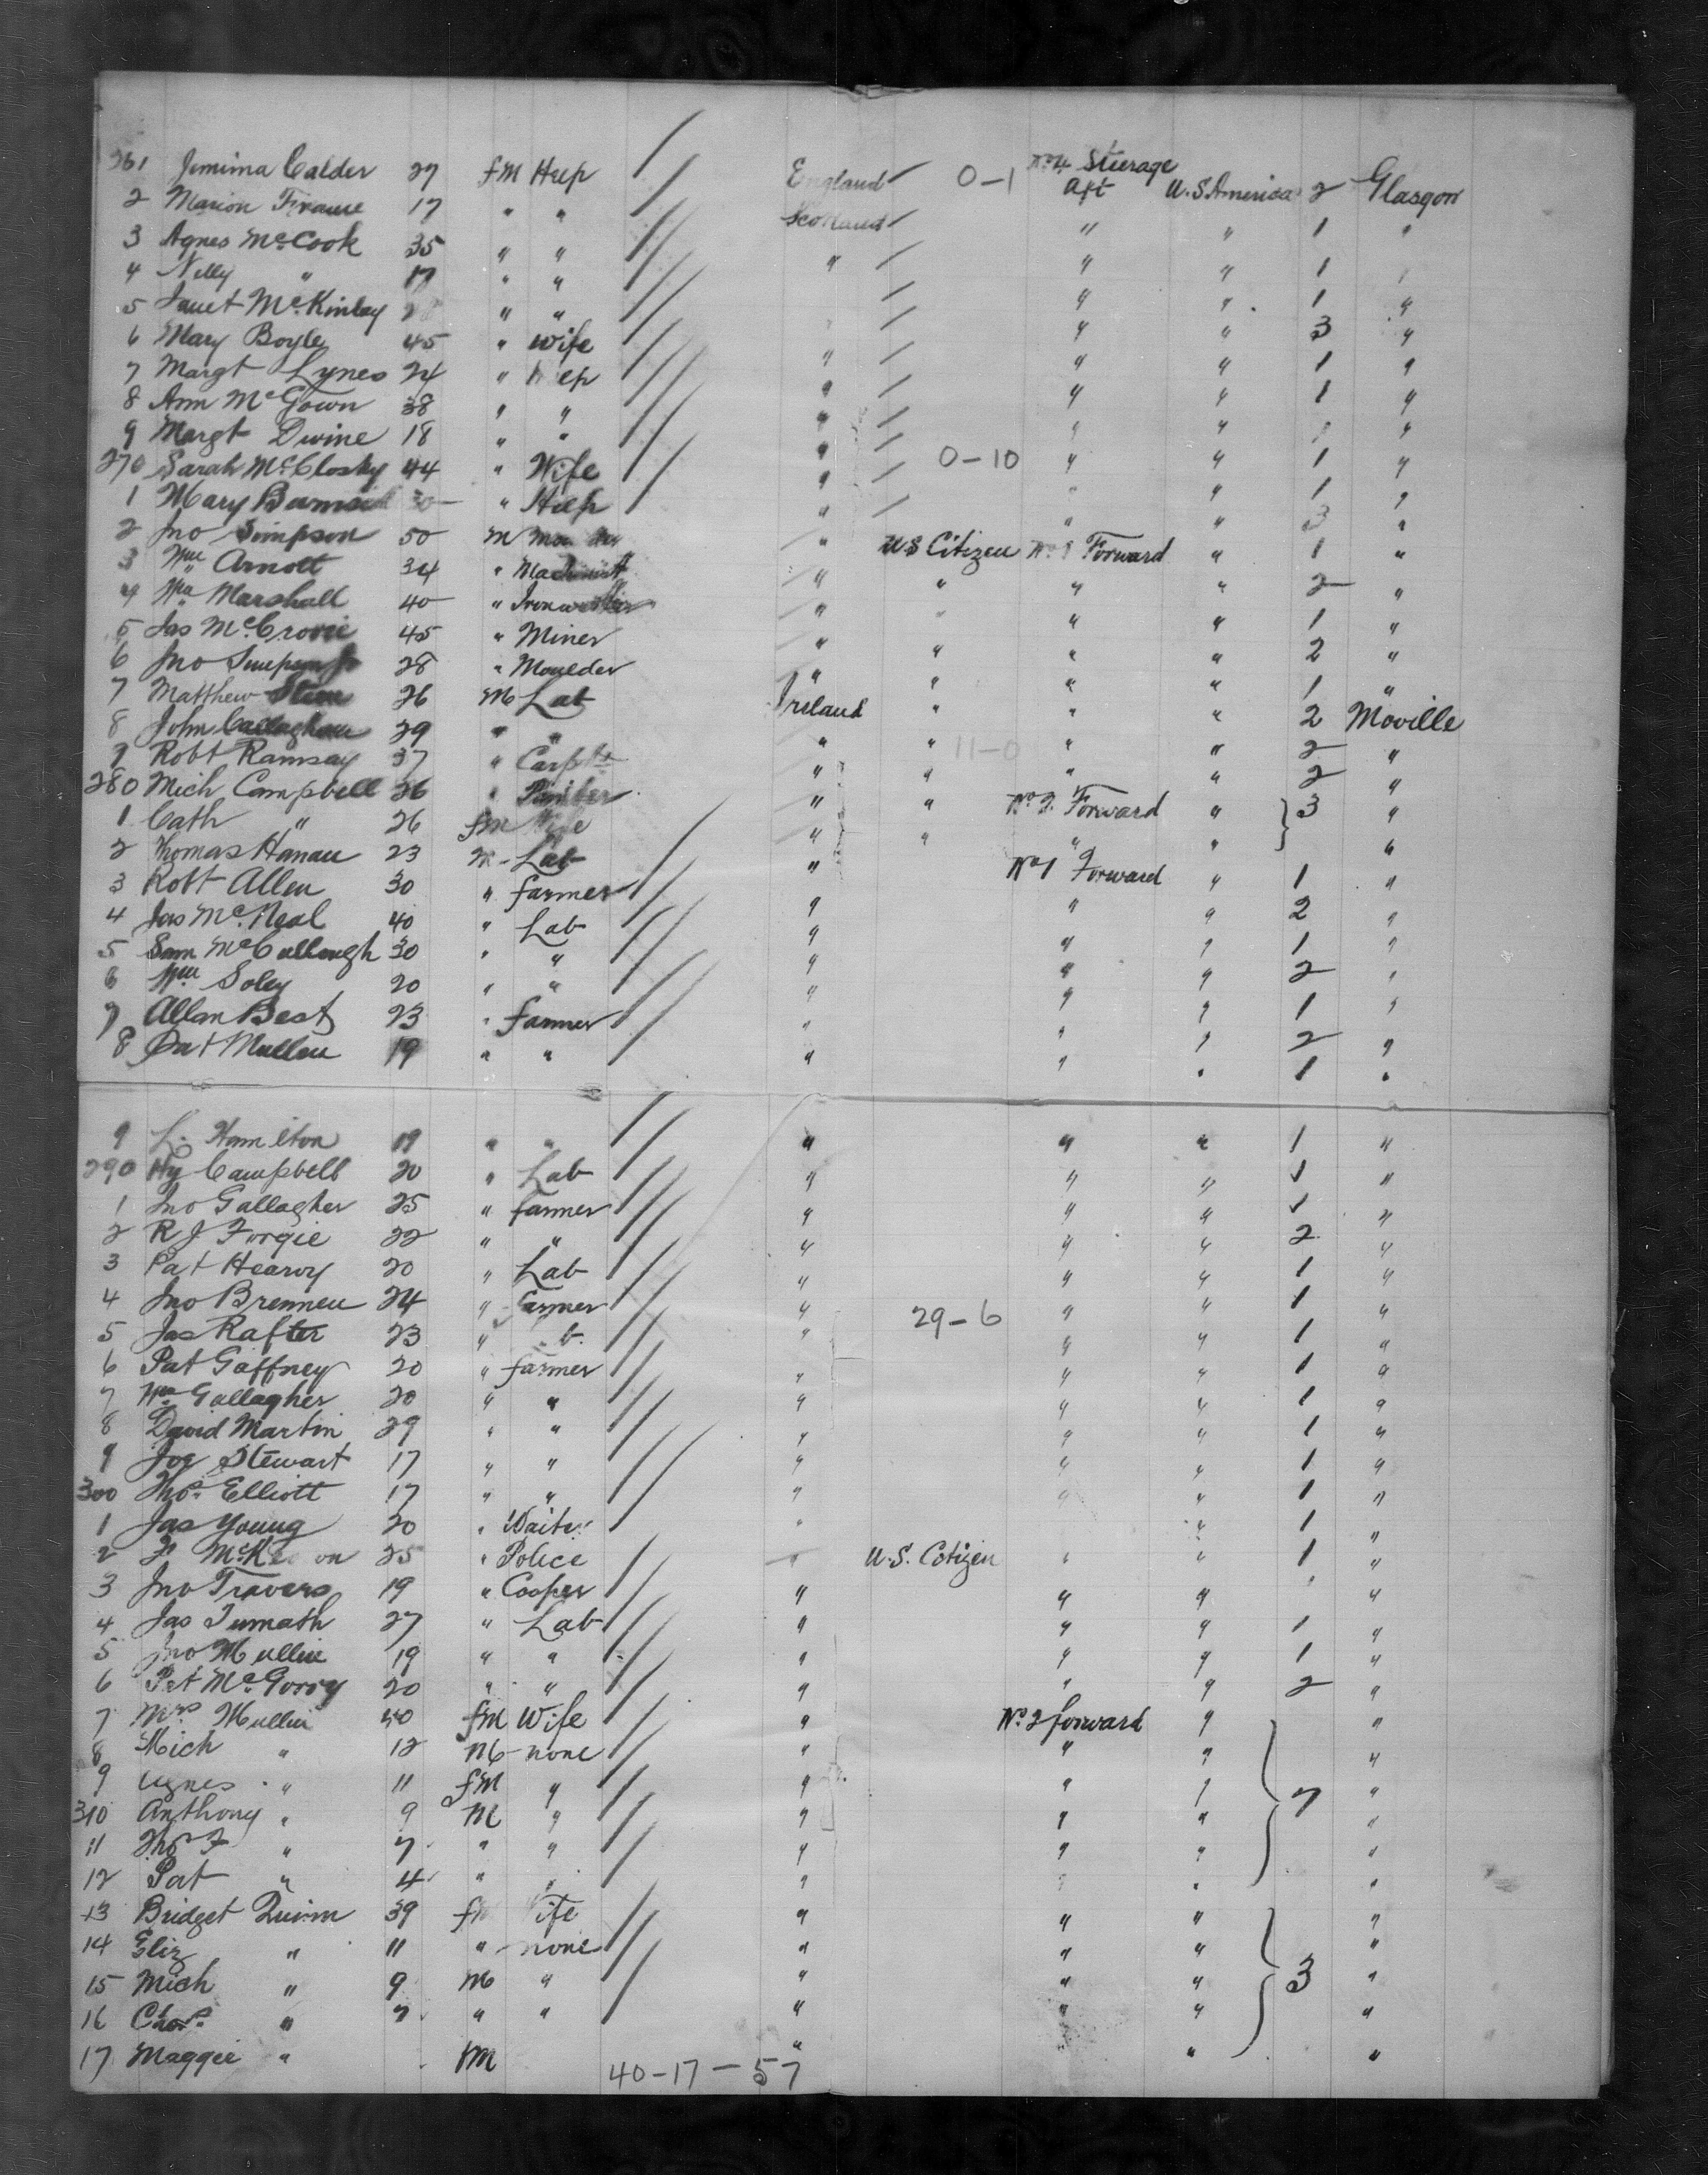 261 Jemima Calder 27 fM Help England 0-1 No 4 Steerage Aft U.S. America 2 Glasgow
2 Marion 17 " " Scotland " " 1 "
3 Agnes McCook 35 " " " " " 1
4 Nelly " 17 " " " " 1 "
5 Janet McKinlay " " " " 3 "
6 Mary Boyle 45 " Wife " " " 1 "
7 Margt Lynes 24 " Help " " " 1 "
8 Ann McGown 38 " " " " "
9 Margt Divine 18 " " " " " 1 "
270 Sarah McClosky 44 " Wife " 0-10 " 1 "
1 Mary 30 " Help " " " 3 "
2 Jno Simpson 50 M " US Citizen No 1 Forward " 1 "
3 Wm Arnott 34 " Machinist " " " " 2 "
4 Wm Marshall 40 " Ironworker " " " " 1 "
5 Jas McCrorie 45 " Miner " " " " 2 "
6 Jno Simpson Jr 28 " Moulder " " " " 1 "
7 Matthew 26 M Lab Ireland " " " 2 Moville
8 John Callaghan 29 " " " " 11-0 " " 2 "
9 Robt Ramsay 37 " Carptr " " " " 2 "
280 Mich Campbell 26 " " " No 2 Forward " 3 "
1 Cath " 26 fM Wife " " " " "
2 Thomas Hanau 23 M Lab " No 1 Forward " 1 "
3 Robt Allen 30 " farmer " " " 2 "
4 Jas McNeal 40 " Lab " " " 1 "
5 Sam McCullough 30 " " " " " 2 "
6 Wm Soley 20 " " " " " 1 "
7 Allan Best 23 " farmer " " " 2 "
8 Pat Mullen 19 " " " " " 1 "
9 L. Hamilton 19 " " " " " 1 "
290 Hy Campbell 20 " Lab " " " 1 "
1 Jno Gallagher 25 " farmer " " " 1 "
2 R J Forgie 22 " " " " " 2 "
3 Pat Hearvy 20 " Lab " " " 1 "
4 Jno Brennen 24 " Farmer " 29-6 " " 1 "
5 Jas Rafter 23 " " " " 1 "
6 Pat Gaffney 20 " farmer " " " 1 "
7 Wm Gallagher 20 " " " " " 1 "
8 David Martin 29 " " " " " 1 "
9 Joe Stewart 17 " " " " " 1 "
300 Thos Elliott 17 " " " " " 1 "
1 Jas Young 20 " Waiter " " 1 "
2 25 " Police " U.S. Citizen " " 1 "
3 Jno Travers 19 " Cooper " " " "
4 Jas Tumath 27 " Lab " " " 1 "
5 Jno Mullin 19 " " " " " 1 "
6 Pat McGorry 20 " " " " " 2 "
7 Mrs Mullin 40 fM Wife " No 2 forward " "
8 Mich " 12 M none " " " "
9 Agnes " 11 fM " " " " 7 "
310 Anthony " 9 M " " " " "
11 Thos F " 7 " " " " " "
12 Pat " 4 " " " " " "
13 Bridget Quinn 39 fM Wife " " " "
14 Eliz " 11 " none " " " "
15 Mich " 9 M " " " " 3 "
16 Chas " 7 " " " " " "
17 Maggie " fM " " "
40-17-57